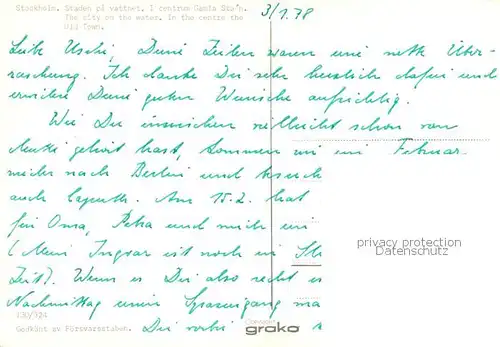 Stockholm. Staden på vattnet. I centrum Gamla Sta'n.
The city on the water. In the centre the
Old Town.
3/1.78
Liebe Uschi, Deine Zeilen waren eine nette Über-
raschung. Ich danke Dir sehr herzlich dafür und
erwidere Deine guten Wünsche aufrichtig.
Wie Du inzwischen vielleicht schon von
gehört hast, kommen wir im Februar
nach Berlin und
auch Am 15.2. hat
für Oma, Petra und mich ein
(Mein Ingvar ist noch in
Zeit). Wenn es Dir also recht
Nachmittag einen Spaziergang
privacy protection
Datenschutz
130/124
Godkänt av Försvarsstaben. Dir
Copyright
grako